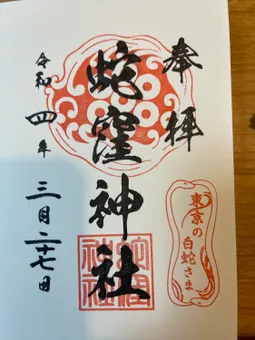 奉拝
東京の
白蛇さま
蛇窪神社
蛇窪
神社
令和四年
三月二十七日